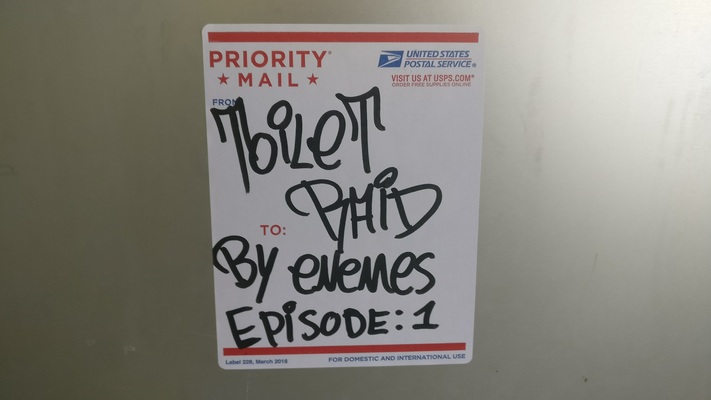 PRIORITY®
★ MAIL ★
UNITED STATES
POSTAL SERVICE®
VISIT US AT USPS.COM®
ORDER FREE SUPPLIES ONLINE
FROM
TOiLeT
RAiD
TO:
By eNeMeS
EPiSODE: 1
Label 228, March 2016
FOR DOMESTIC AND INTERNATIONAL USE